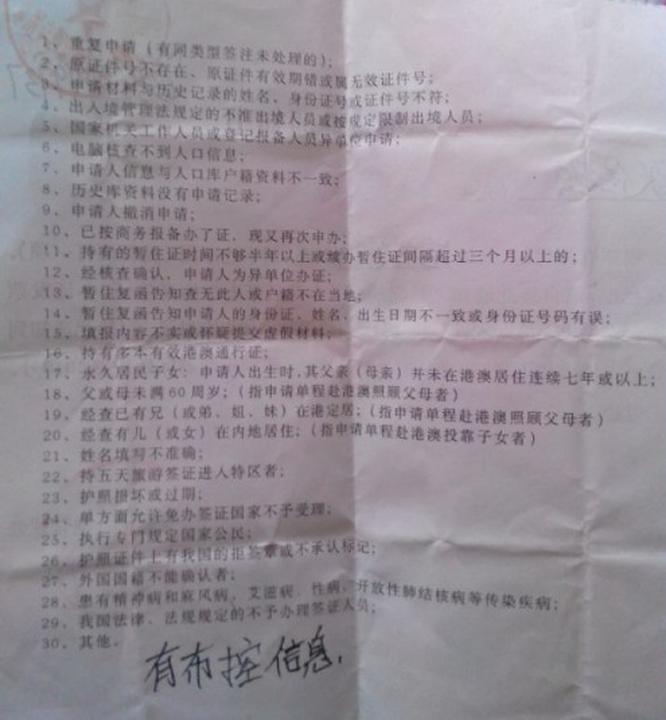 1、重复申请（有同类型签注未处理的）；
2、原证件号不存在、原证件有效期错或属无效证件号；
3、申请材料与历史记录的姓名、身份证号或证件号不符；
4、出入境管理法规定的不准出境人员或按规定限制出境人员；
5、国家机关工作人员或登记报备人员异单位申请；
6、电脑核查不到人口信息；
7、申请人信息与人口库户籍资料不一致；
8、历史库资料没有申请记录；
9、申请人撤消申请；
10、已按商务报备办了证，现又再次申办；
11、持有的暂住证时间不够半年以上或续办暂住证间隔超过三个月以上的；
12、经核查确认，申请人为异单位办证；
13、暂住复函告知查无此人或户籍不在当地；
14、暂住复函告知申请人的身份证、姓名、出生日期不一致或身份证号码有误；
15、填报内容不实或怀疑提交虚假材料；
16、持有多本有效港澳通行证；
17、永久居民子女：申请人出生时，其父亲（母亲）并未在港澳居住连续七年或以上；
18、父或母未满60周岁；（指申请单程赴港澳照顾父母者）
19、经查已有兄（或弟、姐、妹）在港定居；（指申请单程赴港澳照顾父母者）
20、经查有儿（或女）在内地居住；（指申请单程赴港澳投靠子女者）
21、姓名填写不准确；
22、持五天旅游签证进入特区者；
23、护照损坏或过期；
24、单方面允许免办签证国家不予受理；
25、执行专门规定国家公民；
26、护照证件上有我国的拒签章或不承认标记；
27、外国国籍不能确认者；
28、患有精神病和麻风病、艾滋病、性病、开放性肺结核病等传染疾病；
29、我国法律、法规规定的不予办理签证人员；
30、其他。
有布控信息.